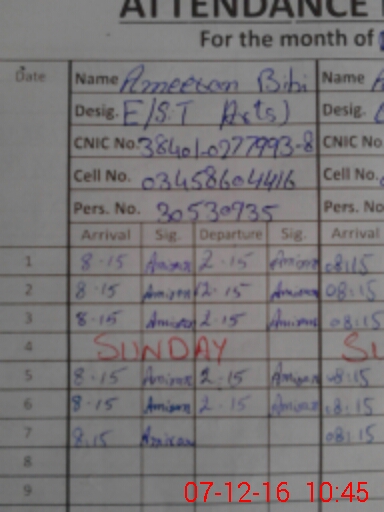 ATTENDANCE
For the month of
Date Name Ameeran Bibi Name
Desig. E/S.T (Arts) Desig.
CNIC No. 38401-0277993-8 CNIC No.
Cell No. 03458604416 Cell No.
Pers. No. 30530735 Pers. No.
Arrival Sig. Departure Sig. Arrival
1 8.15 2.15 08:15
2 8.15 2.15 08:15
3 8.15 2.15 08:15
4 SUNDAY SU
5 8.15 2.15 08:15
6 8.15 2.15 08.15
7 8.15 08:15
8
9
07-12-16 10:45